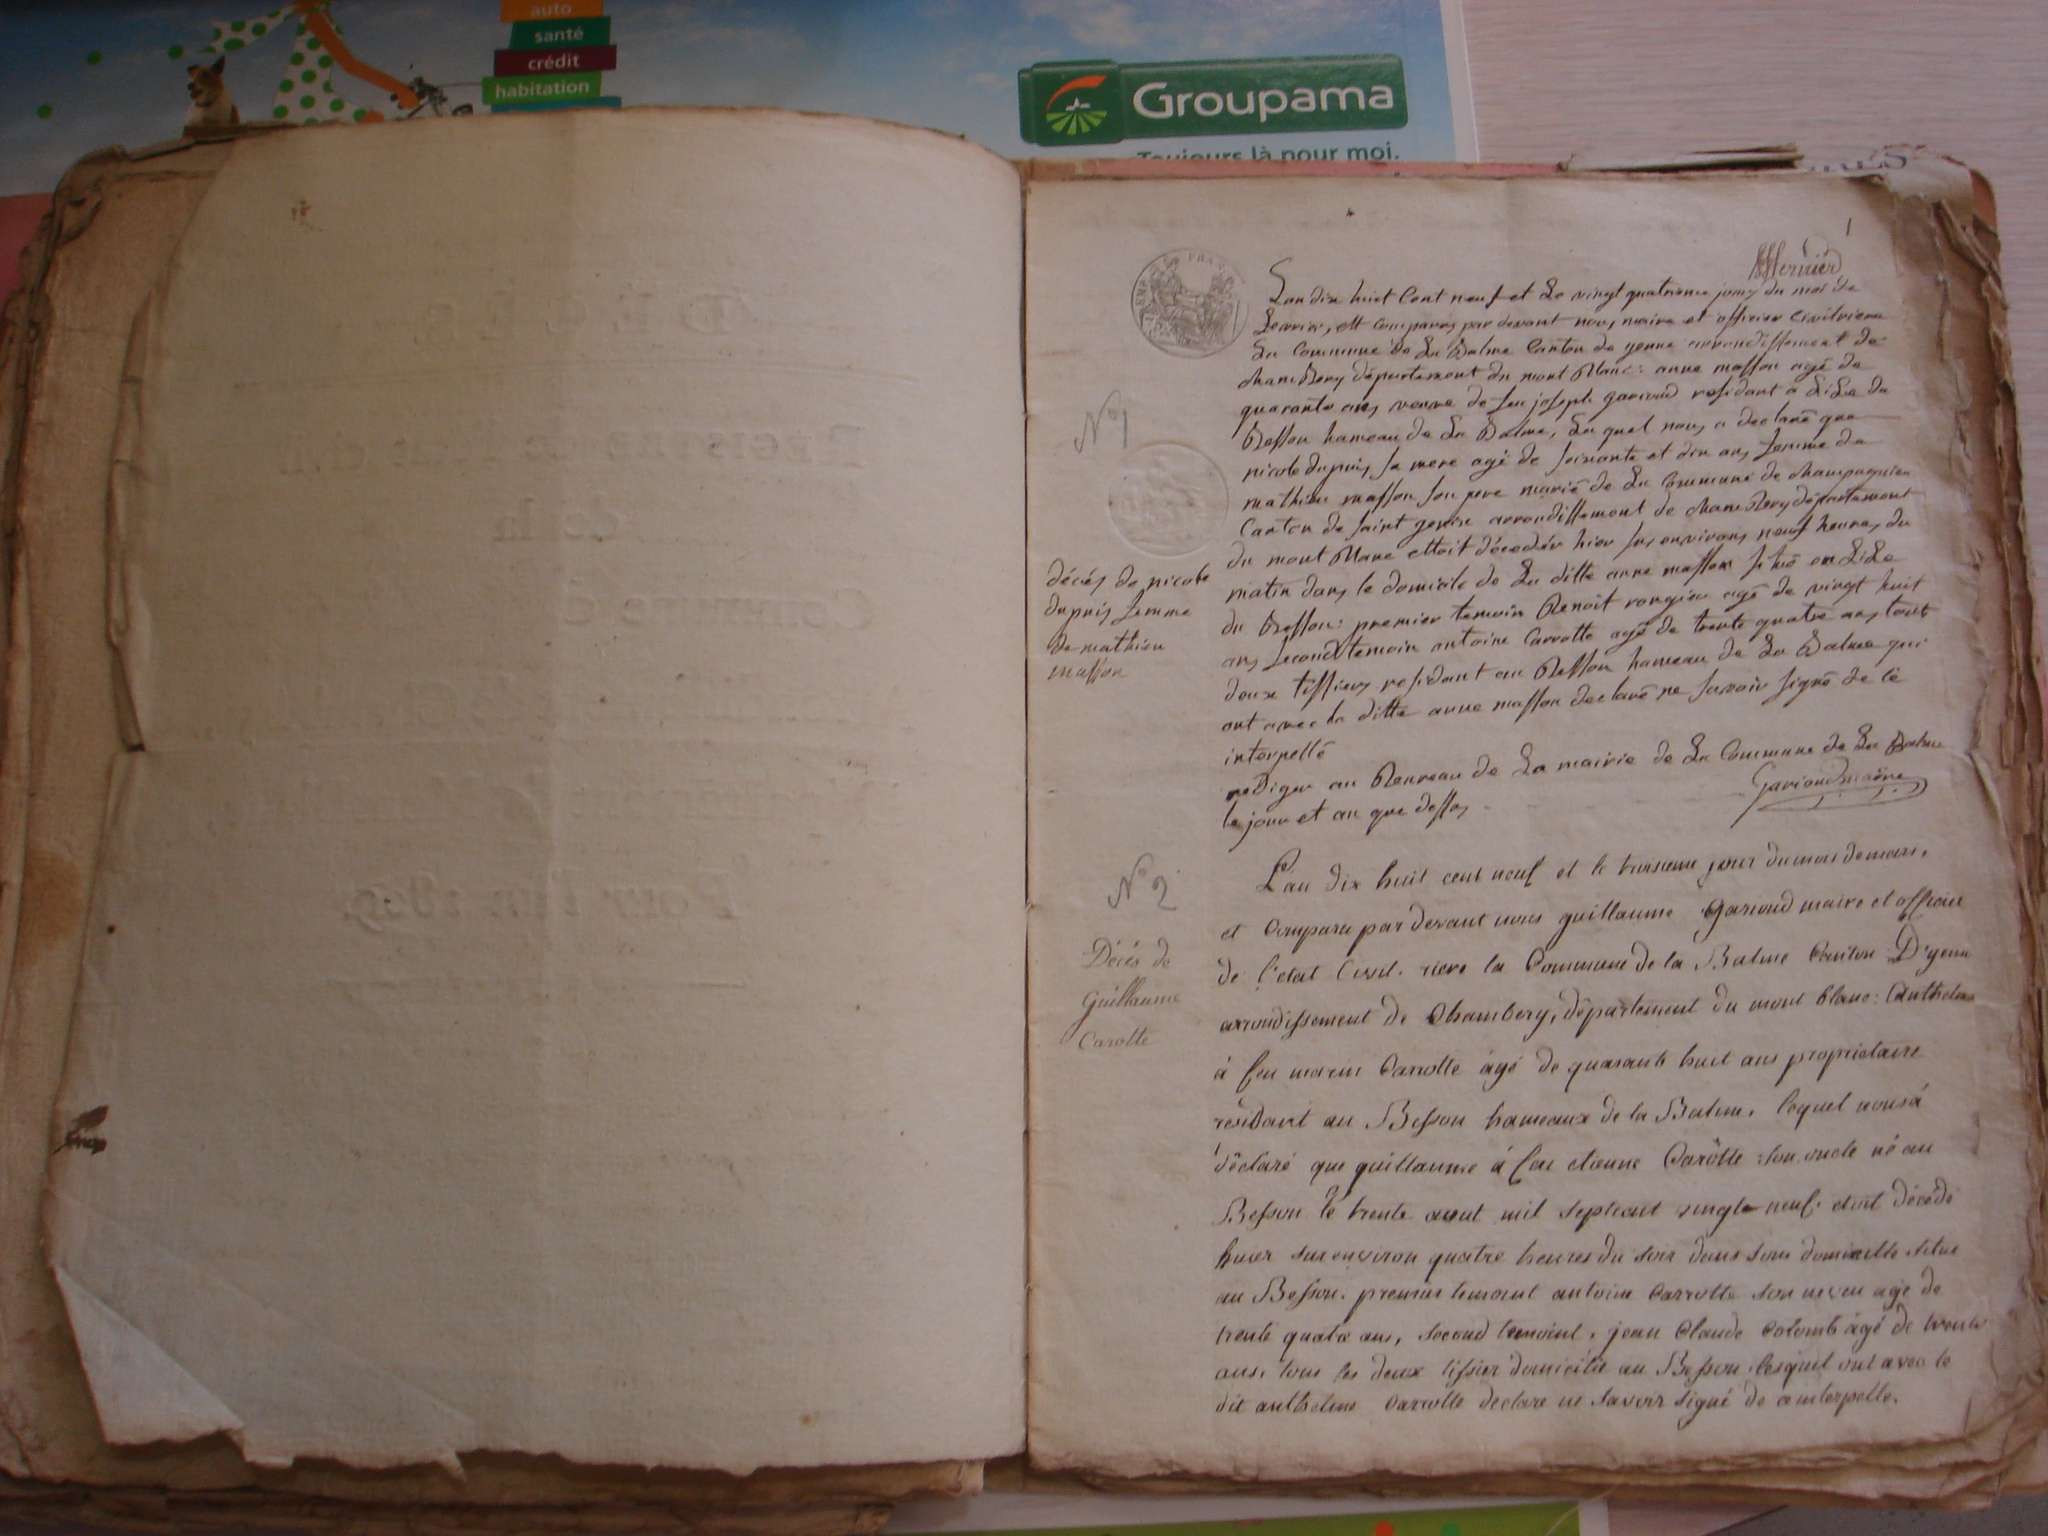 auto
santé
crédit
habitation
Groupama
Toujours là pour moi.
1
L'an dix huit Cent neuf et Le vingt quatrieme jour du moi de
fevrier, est comparus par devant nous maire et officier Civil riere
La Commune de La Balme Canton de yenne arrondissement de
chambery département du mont Blanc: anne masson agé de
quarante ans veuve de feu joseph garioud residant à Lile du
Besson hameau de La Balme, La quel nous a declaré que
nicole dupuis sa mere agé de soixante et dix ans femme de
mathieu masson son pere marié de La Commune de champagnieu
Canton de saint genix arrondissement de chambery département
du mont Blanc ettoit décedée hier sur environs neuf heures du
matin dans le domicile de La ditte anne masson situé en Lile
du Besson: premier temoin Benoit rongier agé de vingt huit
ans second temoin antoine Carrotte agé de trente quatre ans tout
deux tissieur residant au Besson hameau de La Balme qui
ont avec la ditte anne masson declaré ne savoir signé de ce
interpellé
rediger au Beureau de La mairie de La Commune de La Balme
le jour et an que dessus
Garioud maire
N° 1
décés de nicole
dupuis femme
de mathieu
masson
N° 2
Décés de
Guillaume
Carotte
L'an dix huit cent neuf et le troisieme jour du mois de mars,
et Comparu par devant nous guillaume Garioud maire et officier
de l'etat Civil riere la Commune de la Balme Canton D'yenne
arrondissement de Chambery, département du mont blanc: Anthelme
à feu marin Carrotte âgé de quarante huit ans proprietaire
résidant au Besson hameaux de la Balme, lequel nous à
déclaré que guillaume à feu etienne Carôtte son oncle né au
Besson le trente aout mil septcent vingt neuf etoit décédé
huier sur environ quatre heures du soir dans son domicille situé
au Besson. premier temoint antoine Carrotte son neveu agé de
trente quatre ans, second temoint, jean Claude Colomb âgé de trente
ans, tous les deux tissier domicilié au Besson lesquel ont avec le
dit anthelme Carrotte declare ne savoir signé de ce interpelle.